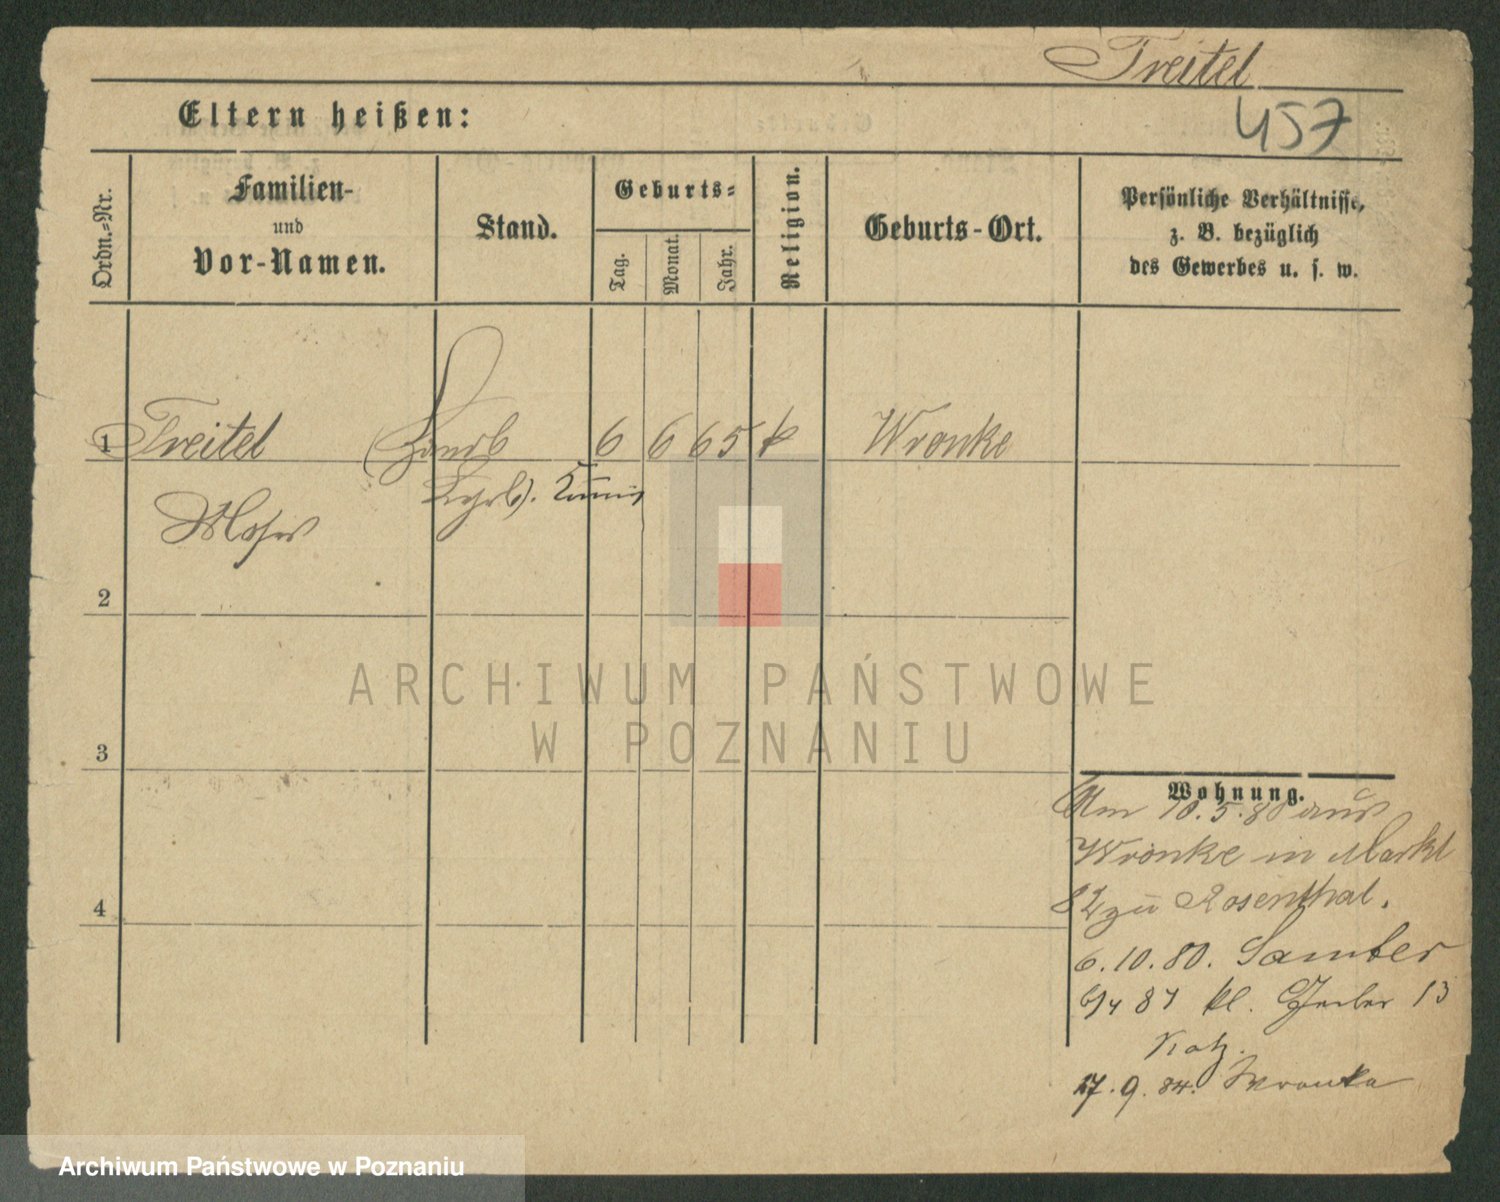 Treitel
457
Eltern heißen:
Ordn.=Nr.
Familien-
und
Vor-Namen.
Stand.
Geburts=
Tag.
Monat.
Jahr.
Religion.
Geburts-Ort.
Persönliche Verhältnisse,
z. B. bezüglich
des Gewerbes u. s. w.
1
Treitel
6 6 65
Wronke
Moses
2
ARCHIWUM PAŃSTWOWE
W POZNANIU
3
Wohnung.
Am 10.5.80 aus
Wronke in Markt
82 zu Rosenthal.
4
6.10.80. Samter
kl. Gerber 13
Katz.
17.9.84. Wronke
Archiwum Państwowe w Poznaniu